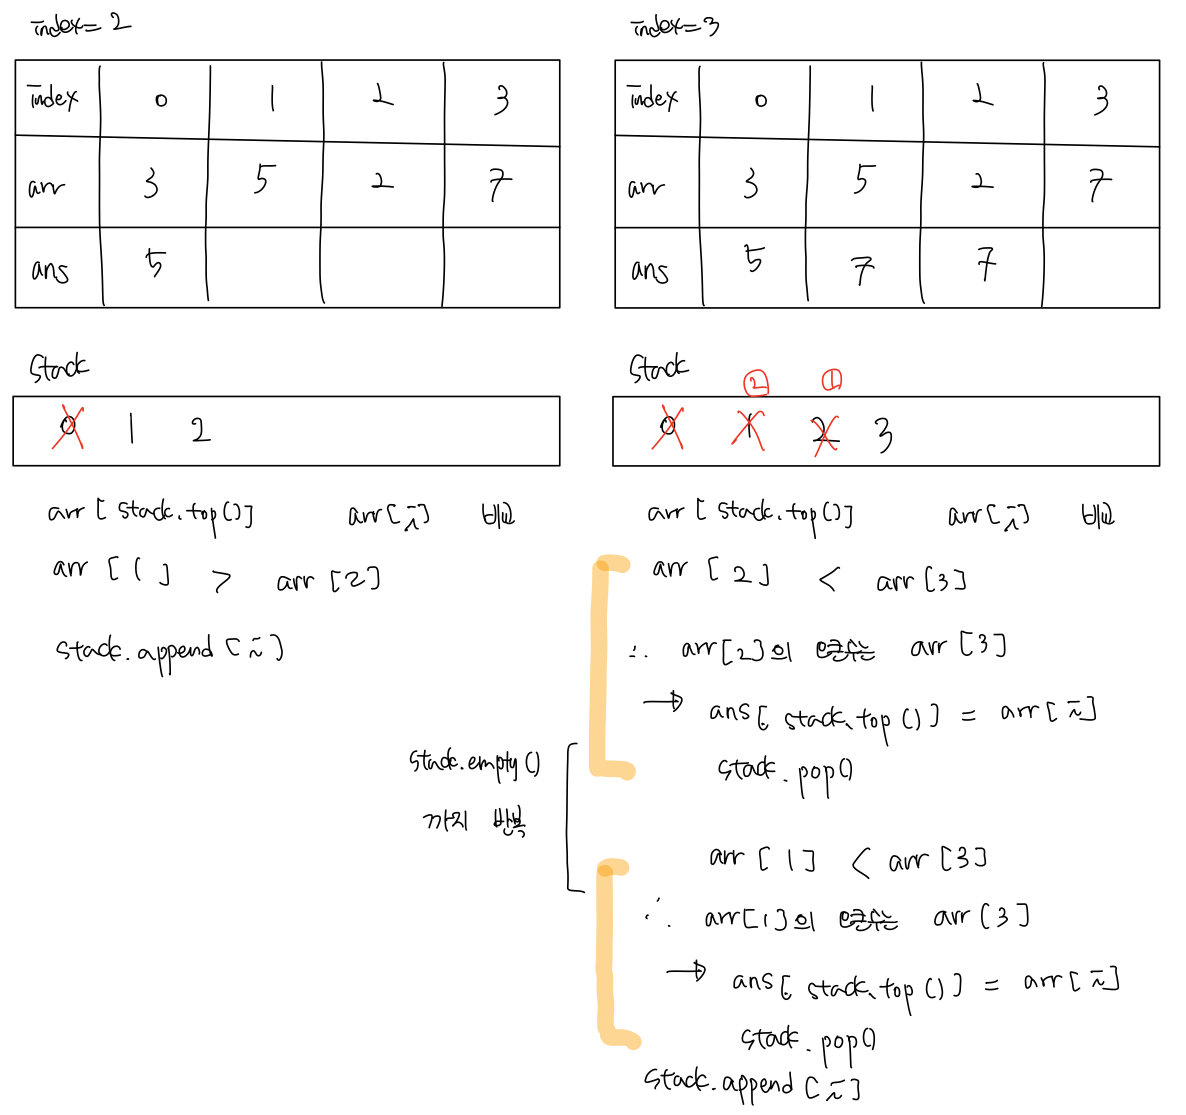 index = 2
index 0 1 2 3
arr 3 5 2 7
ans 5
Stack
0 1 2
arr [ stack.top()] arr[i] 비교
arr [1] > arr [2]
stack.append [i]
index = 3
index 0 1 2 3
arr 3 5 2 7
ans 5 7 7
Stack
② ①
0 1 2 3
arr [ stack.top()] arr[i] 비교
arr [2] < arr [3]
∴ arr[2]의 오큰수는 arr [3]
→ ans[ stack.top()] = arr[i]
stack.pop()
stack.empty()
까지 반복
arr [1] < arr [3]
∴ arr[1]의 오큰수는 arr [3]
→ ans[ stack.top()] = arr[i]
stack.pop()
stack.append [i]